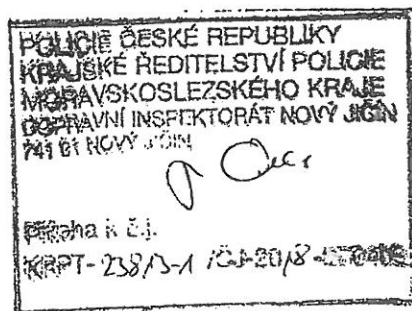 POLICIE ČESKÉ REPUBLIKY
KRAJSKÉ ŘEDITELSTVÍ POLICIE
MORAVSKOSLEZSKÉHO KRAJE
DOPRAVNÍ INSPEKTORÁT NOVÝ JIČÍN
741 01 NOVÝ JIČÍN
Příloha k č.j.
KRPT-238/3-1 /ČJ-2018-